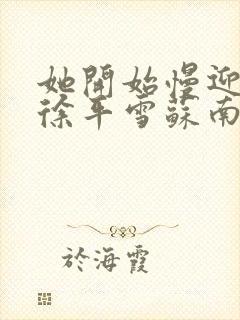 她開始慢迎
徐平雪蘇南
於海霞